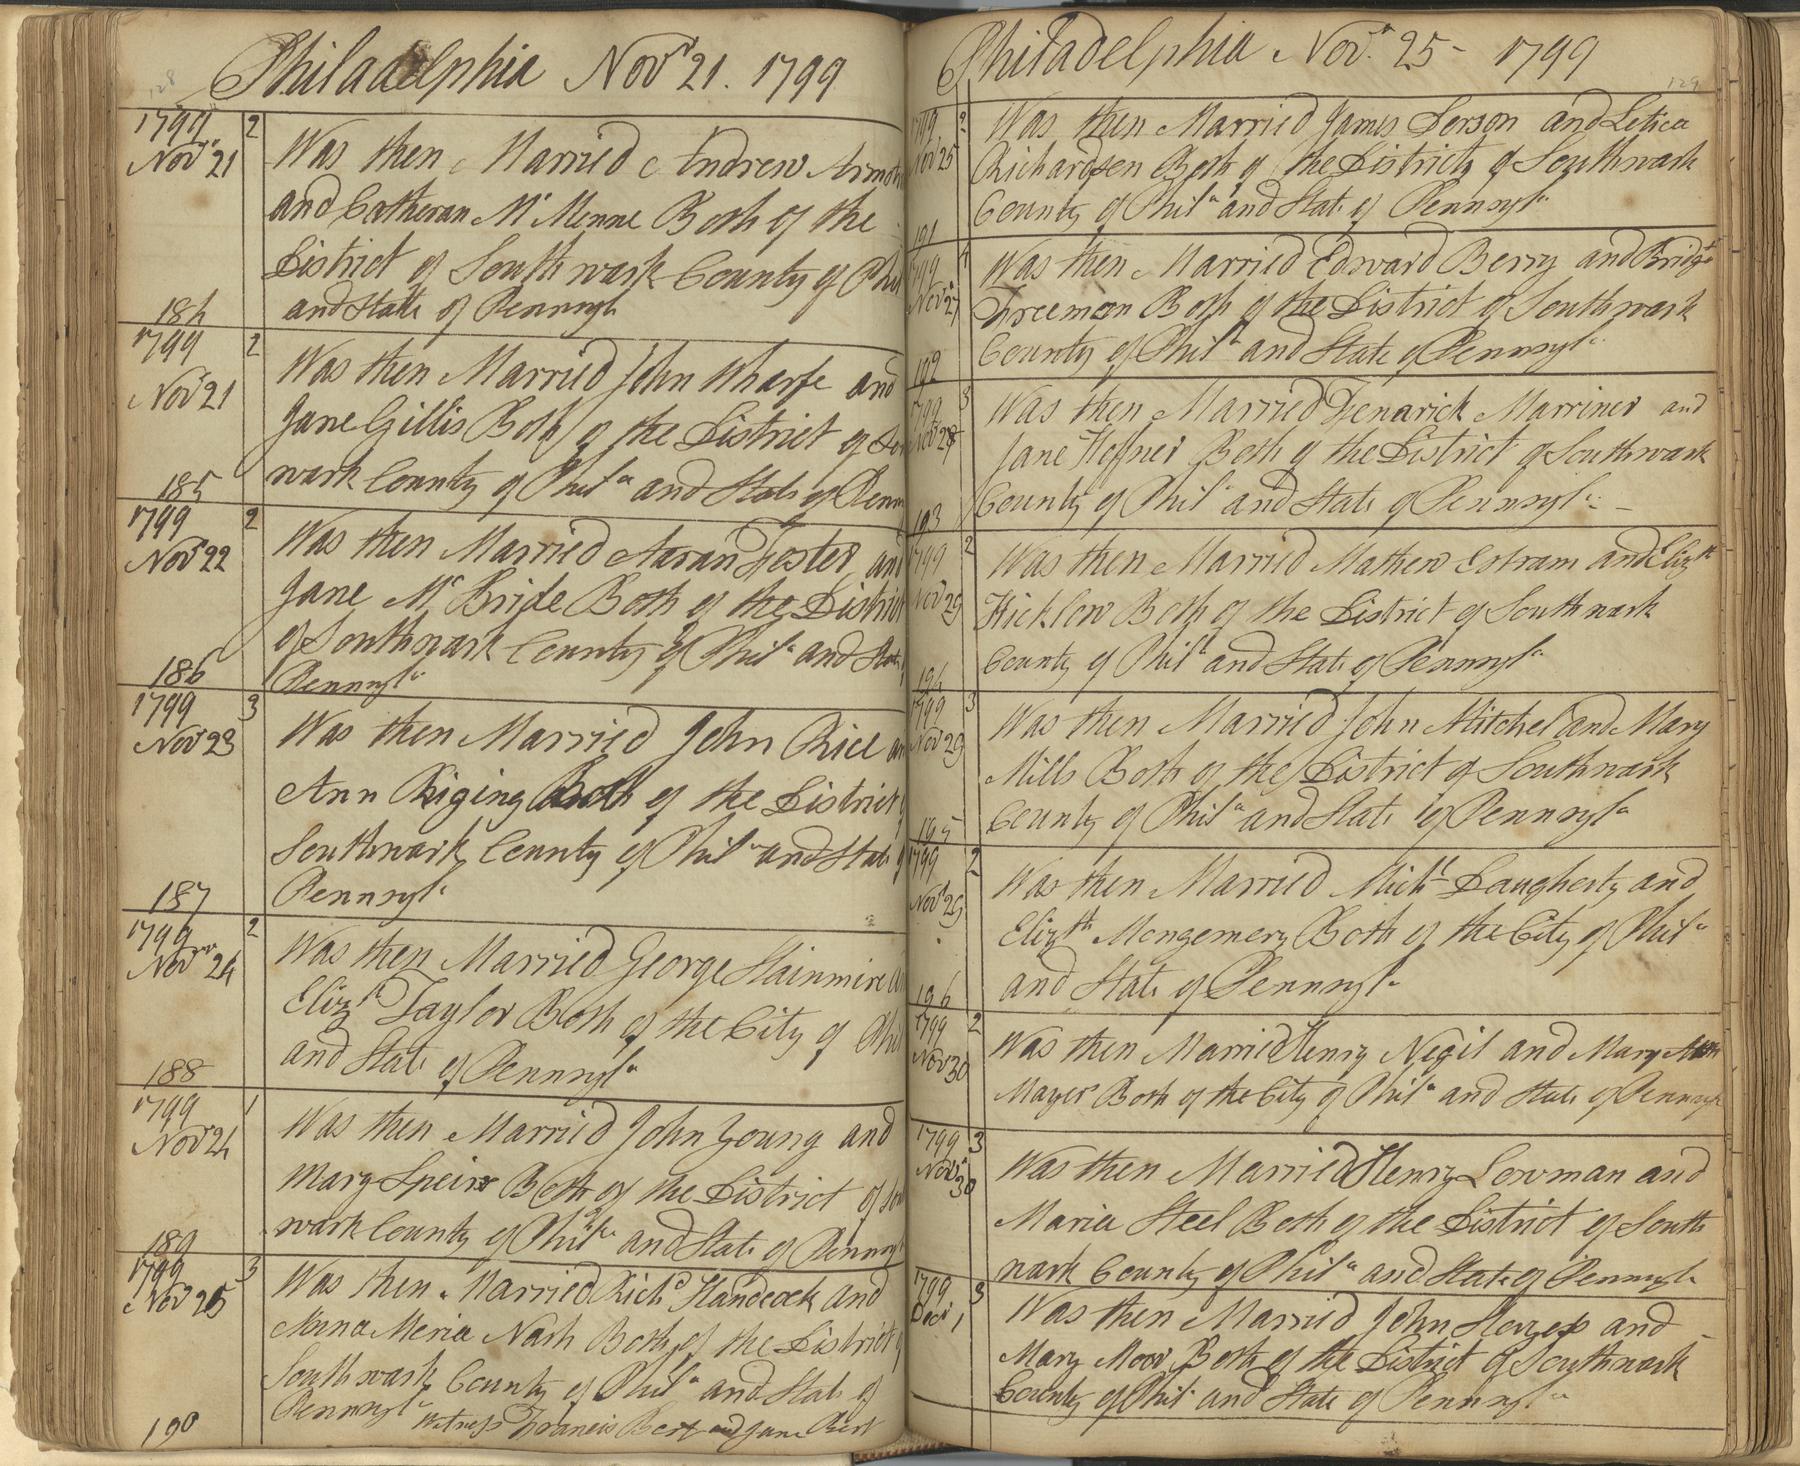 128
Philadelphia Novr 21. 1799
1799 2
Novr 21
Was then Married Andrew
and Catheran Mc Menne Both of the
District of Southwark County of Phil
and State of Pennsyl
184
1799 2
Novr 21
Was then Married John Wharfe and
Jane Gillis Both of the District of Sou
wark County of Phila and State of Penn
185
1799 2
Novr 22
Was then Married Aaran Foster and
Jane Mc Bride Both of the District
of Southwark County of Phila and State
Pennsyla
186
1799 3
Novr 23
Was then Married John Rice an
Ann Riging Both of the District
Southwark County of Phila and State of
Pennsyla
187
1799 2
Novr 24
Was then Married George Stainmire a
Elizth Taylor Both of the City of Phil
and State of Pennsyla
188
1799 1
Novr 24
Was then Married John Young and
Mary Speirs Both of the District of Sou
wark County of Phila and State of Pennsyl
189
1799 3
Novr 25
Was then Married Richd Handcock and
Anna Meria Nash Both of the District of
Southwark County of Phila and State of
Pennsyla Witness Francis Bert and Jane Bert
190
129
Philadelphia Novr 25 - 1799
1799 2
Novr 25
Was then Married James Serson and Letica
Richardsen Both of the District of Southwark
County of Phila and State of Pennsyla
191
1799 1
Novr 27
Was then Married Edward Berry and Bridgt
Freeman Both of the District of Southwark
County of Phila and State of Pennsyla
192
1799 3
Novr 28
Was then Married Fenarick Marriner and
Jane Heffner Both of the District of Southwark
County of Phila and State of Pennsyla
193
1799 2
Novr 29
Was then Married Mathew Cotram and Elizth
Hicklow Both of the District of Southwark
County of Phila and State of Pennsyla
194
1799 3
Novr 29
Was then Married John Mitchel and Mary
Mills Both of the District of Southwark
County of Phila and State of Pennsyla
195
1799 2
Novr 29
Was then Married Michl Daugherty and
Elizth Mongemery Both of the City of Phila
and State of Pennsyla
196
1799 2
Novr 30
Was then Married Henry Negil and Mary Ann
Mayer Both of the City of Phila and State of Pennsyl
1799 3
Novr 30
Was then Married Henry Lowman and
Maria Steel Both of the District of South
wark County of Phila and State of Pennsyla
1799 3
Decr 1
Was then Married John and
Mary Moor Both of the District of Southwark
County of Phila and State of Pennsyla